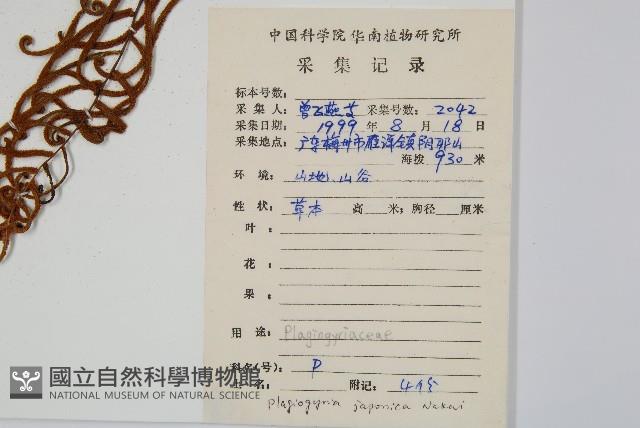 中国科学院华南植物研究所
采集记录
标本号数：
采集人： 曾飞燕等 采集号数： 2042
采集日期： 1999 年 8 月 18 日
采集地点： 广东梅州市雁洋镇阴那山
海拨 930 米
环境： 山地、山谷
性状： 草本 高 米；胸径 厘米
叶：
花：
果：
用途： Plagiogyriaceae
科名(号)： P
名： 附记： 4份
Plagiogyria japonica Nakai
國立自然科學博物館
NATIONAL MUSEUM OF NATURAL SCIENCE